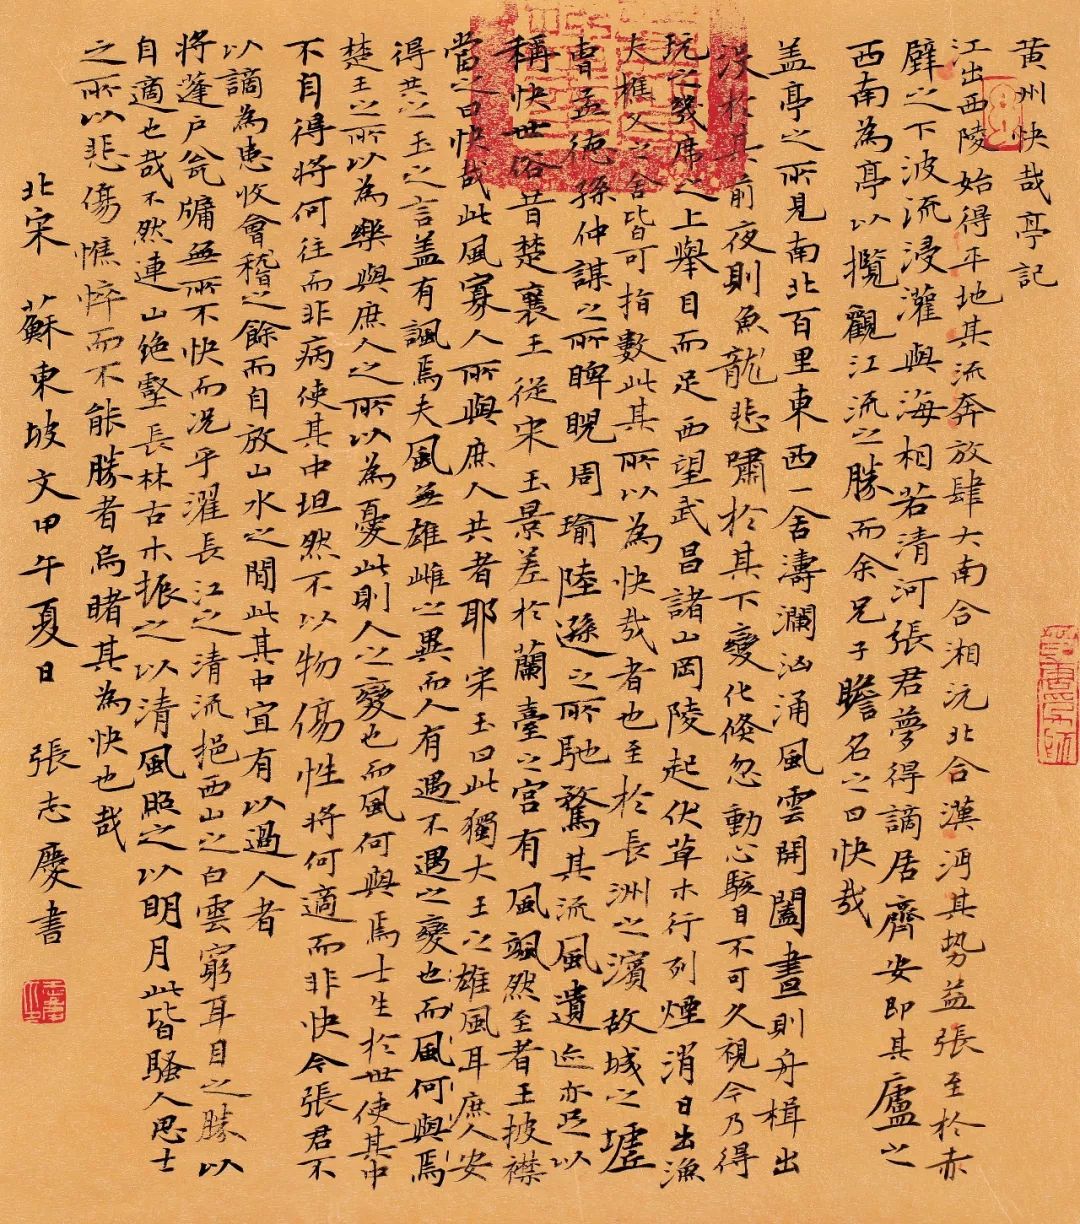 黄州快哉亭記
江出西陵始得平地其流奔放肆大南合湘沅北合漢沔其势益張至於赤
壁之下波流浸灌與海相若清河張君夢得謫居齊安即其廬之
西南為亭以攬觀江流之勝而余兄子瞻名之曰快哉
盖亭之所見南北百里東西一舍濤瀾汹涌風雲開闔晝則舟楫出
没於其前夜則魚龍悲嘯於其下變化倏忽動心駭目不可久視今乃得
玩之幾席之上舉目而足西望武昌諸山岡陵起伏草木行列煙消日出漁
夫樵父之舍皆可指數此其所以為快哉者也至於長洲之濱故城之墟
曹孟德孫仲謀之所睥睨周瑜陸遜之所馳騖其流風遺迹亦足以
稱快世俗昔楚襄王從宋玉景差於蘭臺之宮有風颯然至者王披襟
當之曰快哉此風寡人所與庶人共者耶宋玉曰此獨大王之雄風耳庶人安
得共之玉之言盖有諷焉夫風無雄雌之異而人有遇不遇之變也而風何與焉
楚王之所以為樂與庶人之所以為憂此則人之變也而風何與焉士生於世使其中
不自得將何往而非病使其中坦然不以物傷性將何適而非快今張君不
以謫為患收會稽之餘而自放山水之間此其中宜有以過人者
将蓬户瓮牖無所不快而况乎濯長江之清流挹西山之白雲窮耳目之勝以
自適也哉不然連山绝壑長林古木振之以清風照之以明月此皆騷人思士
之所以悲傷憔悴而不能勝者烏睹其為快也哉
北宋 蘇東坡文甲午夏日 張志慶書